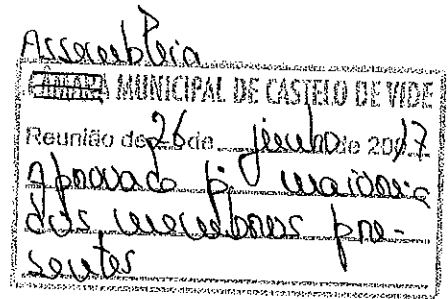 Assembleia
CÂMARA MUNICIPAL DE CASTELO DE VIDE
Reunião de 26 de junho de 2017
Aprovado p. maioria
dos membros pre-
sentes